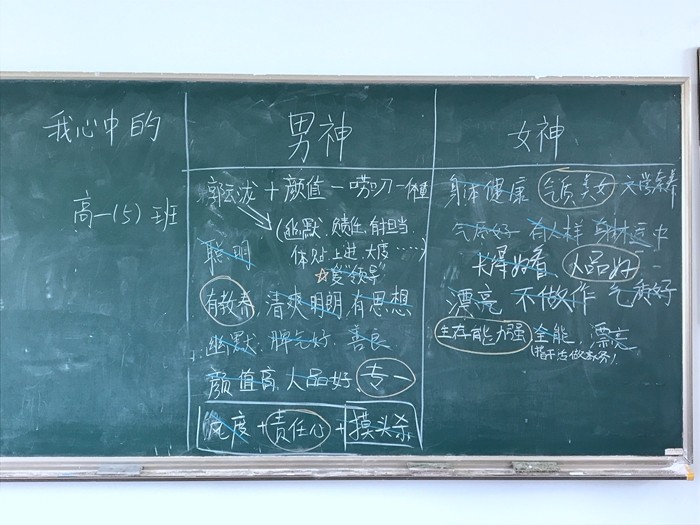 我心中的
高一(5)班
男神
郭云泷 + 颜值 - 唠叨 -
(幽默、负责任、有担当、
体贴、上进、大度……)
聪明
☆爱"领导"
有教养,清爽明朗,有思想
幽默、脾气好、善良
颜值高、人品好、专一
风度 + 责任心 + 摸头杀
女神
身体健康 气质美女 文学素养
气质好 有人样 身材适中
长得好看 人品好
漂亮 不做作 气质好
生存能力强 全能、漂亮